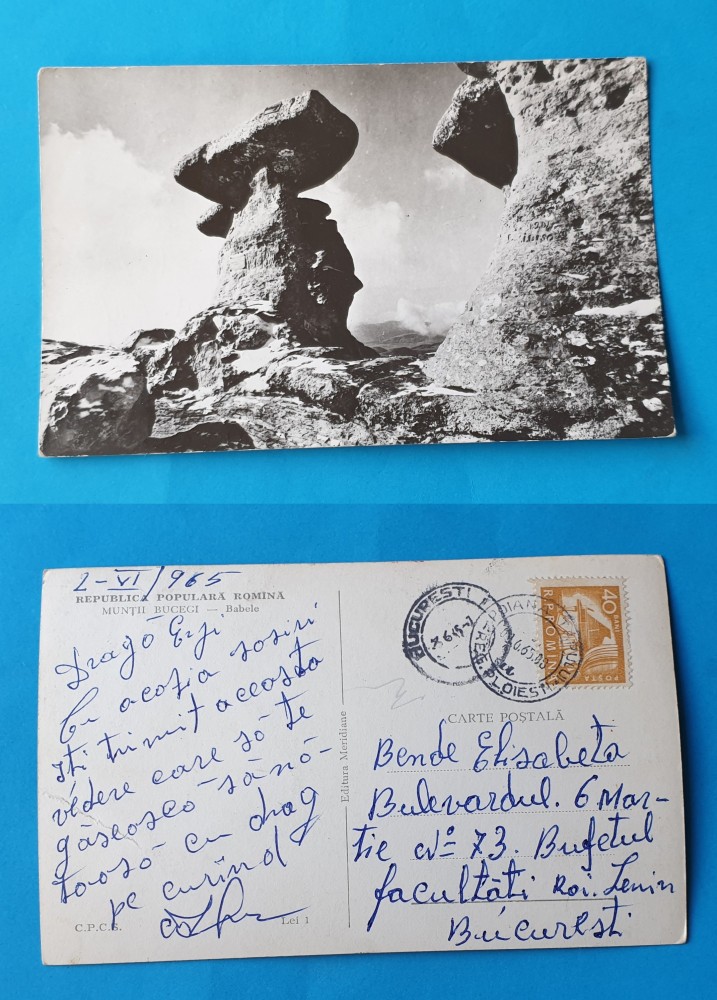 2-VI/965
REPUBLICA POPULARĂ ROMÎNĂ
MUNȚII BUCEGI — Babele
Dragă Erji
Cu ocazia sosiri
îți trimit aceasta
vedere care să te
găsească sănă-
toasă cu drag
pe curînd
C.P.C.S.
Lei 1
Editura Meridiane
BUCUREȘTI
PLOIEȘTI
40 BANI
R.P.ROMINA
POSTA
CARTE POȘTALĂ
Bende Elisabeta
Bulevardul. 6 Mar-
tie No 73. Bufetul
facultăti Roi. Lenin
București